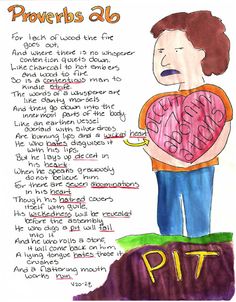 Proverbs 26
For lack of wood the fire
goes out,
And where there is no whisperer
contention quiets down.
Like charcoal to hot embers
and wood to fire
So is a contentious man to
kindle strife.
The words of a whisperer are
like dainty morsels
And they go down into the
innermost parts of the body
Like an earthen vessel
overlaid with silver dross
Are burning lips and a wicked heart
He who hates disguises it
with his lips,
But he lays up deceit in
his heart
When he speaks graciously
do not believe him
For there are seven abominations
in his heart
Though his hatred covers
itself with guile,
His wickedness will be revealed
before the assembly
He who digs a pit will fall
into it
And he who rolls a stone,
it will come back on him
A lying tongue hates those it
crushes
And a flattering mouth
works ruin.
V20-28
PIT